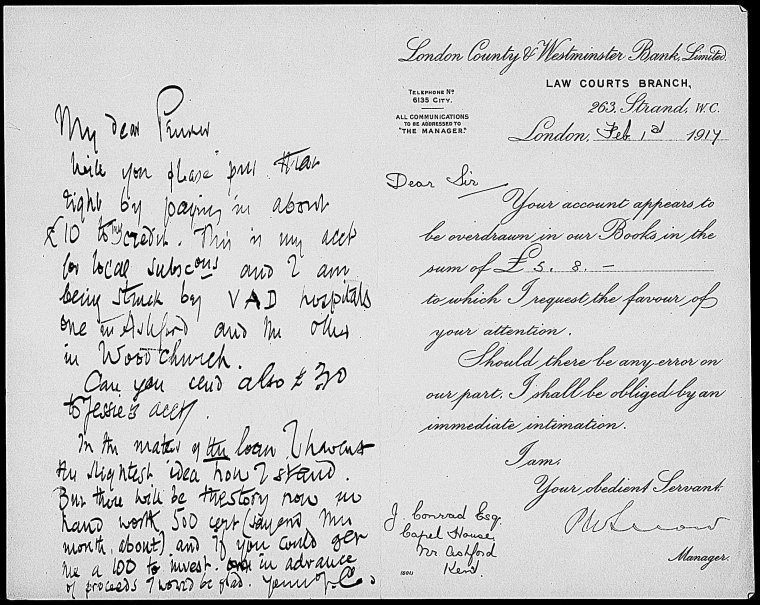 My dear Pinker
Will you please put that
right by paying in about
£10 to my credit. This is my acct
for local subscons and I am
being struck by VAD hospitals
one in Ashford and the other
in Woodchurch.
Can you send also £30
to Jessie's acct/.
In the matter of the loan I havent
the slightest idea how I stand.
But there will be the story now in
hand worth 500 cert (say end this
month about) and if you could get
me a 100 to invest in advance
of proceeds I would be glad. Yours
London County & Westminster Bank, Limited.
LAW COURTS BRANCH,
TELEPHONE No
6135 CITY.
263, Strand, W.C.
ALL COMMUNICATIONS
TO BE ADDRESSED TO
"THE MANAGER."
London, Feb 1st 1917
Dear Sir
Your account appears to
be overdrawn in our Books, in the
sum of £ 5. 8. –
to which I request the favour of
your attention.
Should there be any error on
our part, I shall be obliged by an
immediate intimation.
I am,
Your obedient Servant.
J Conrad Esq.
Capel House
Nr Ashford
Kent.
Manager.